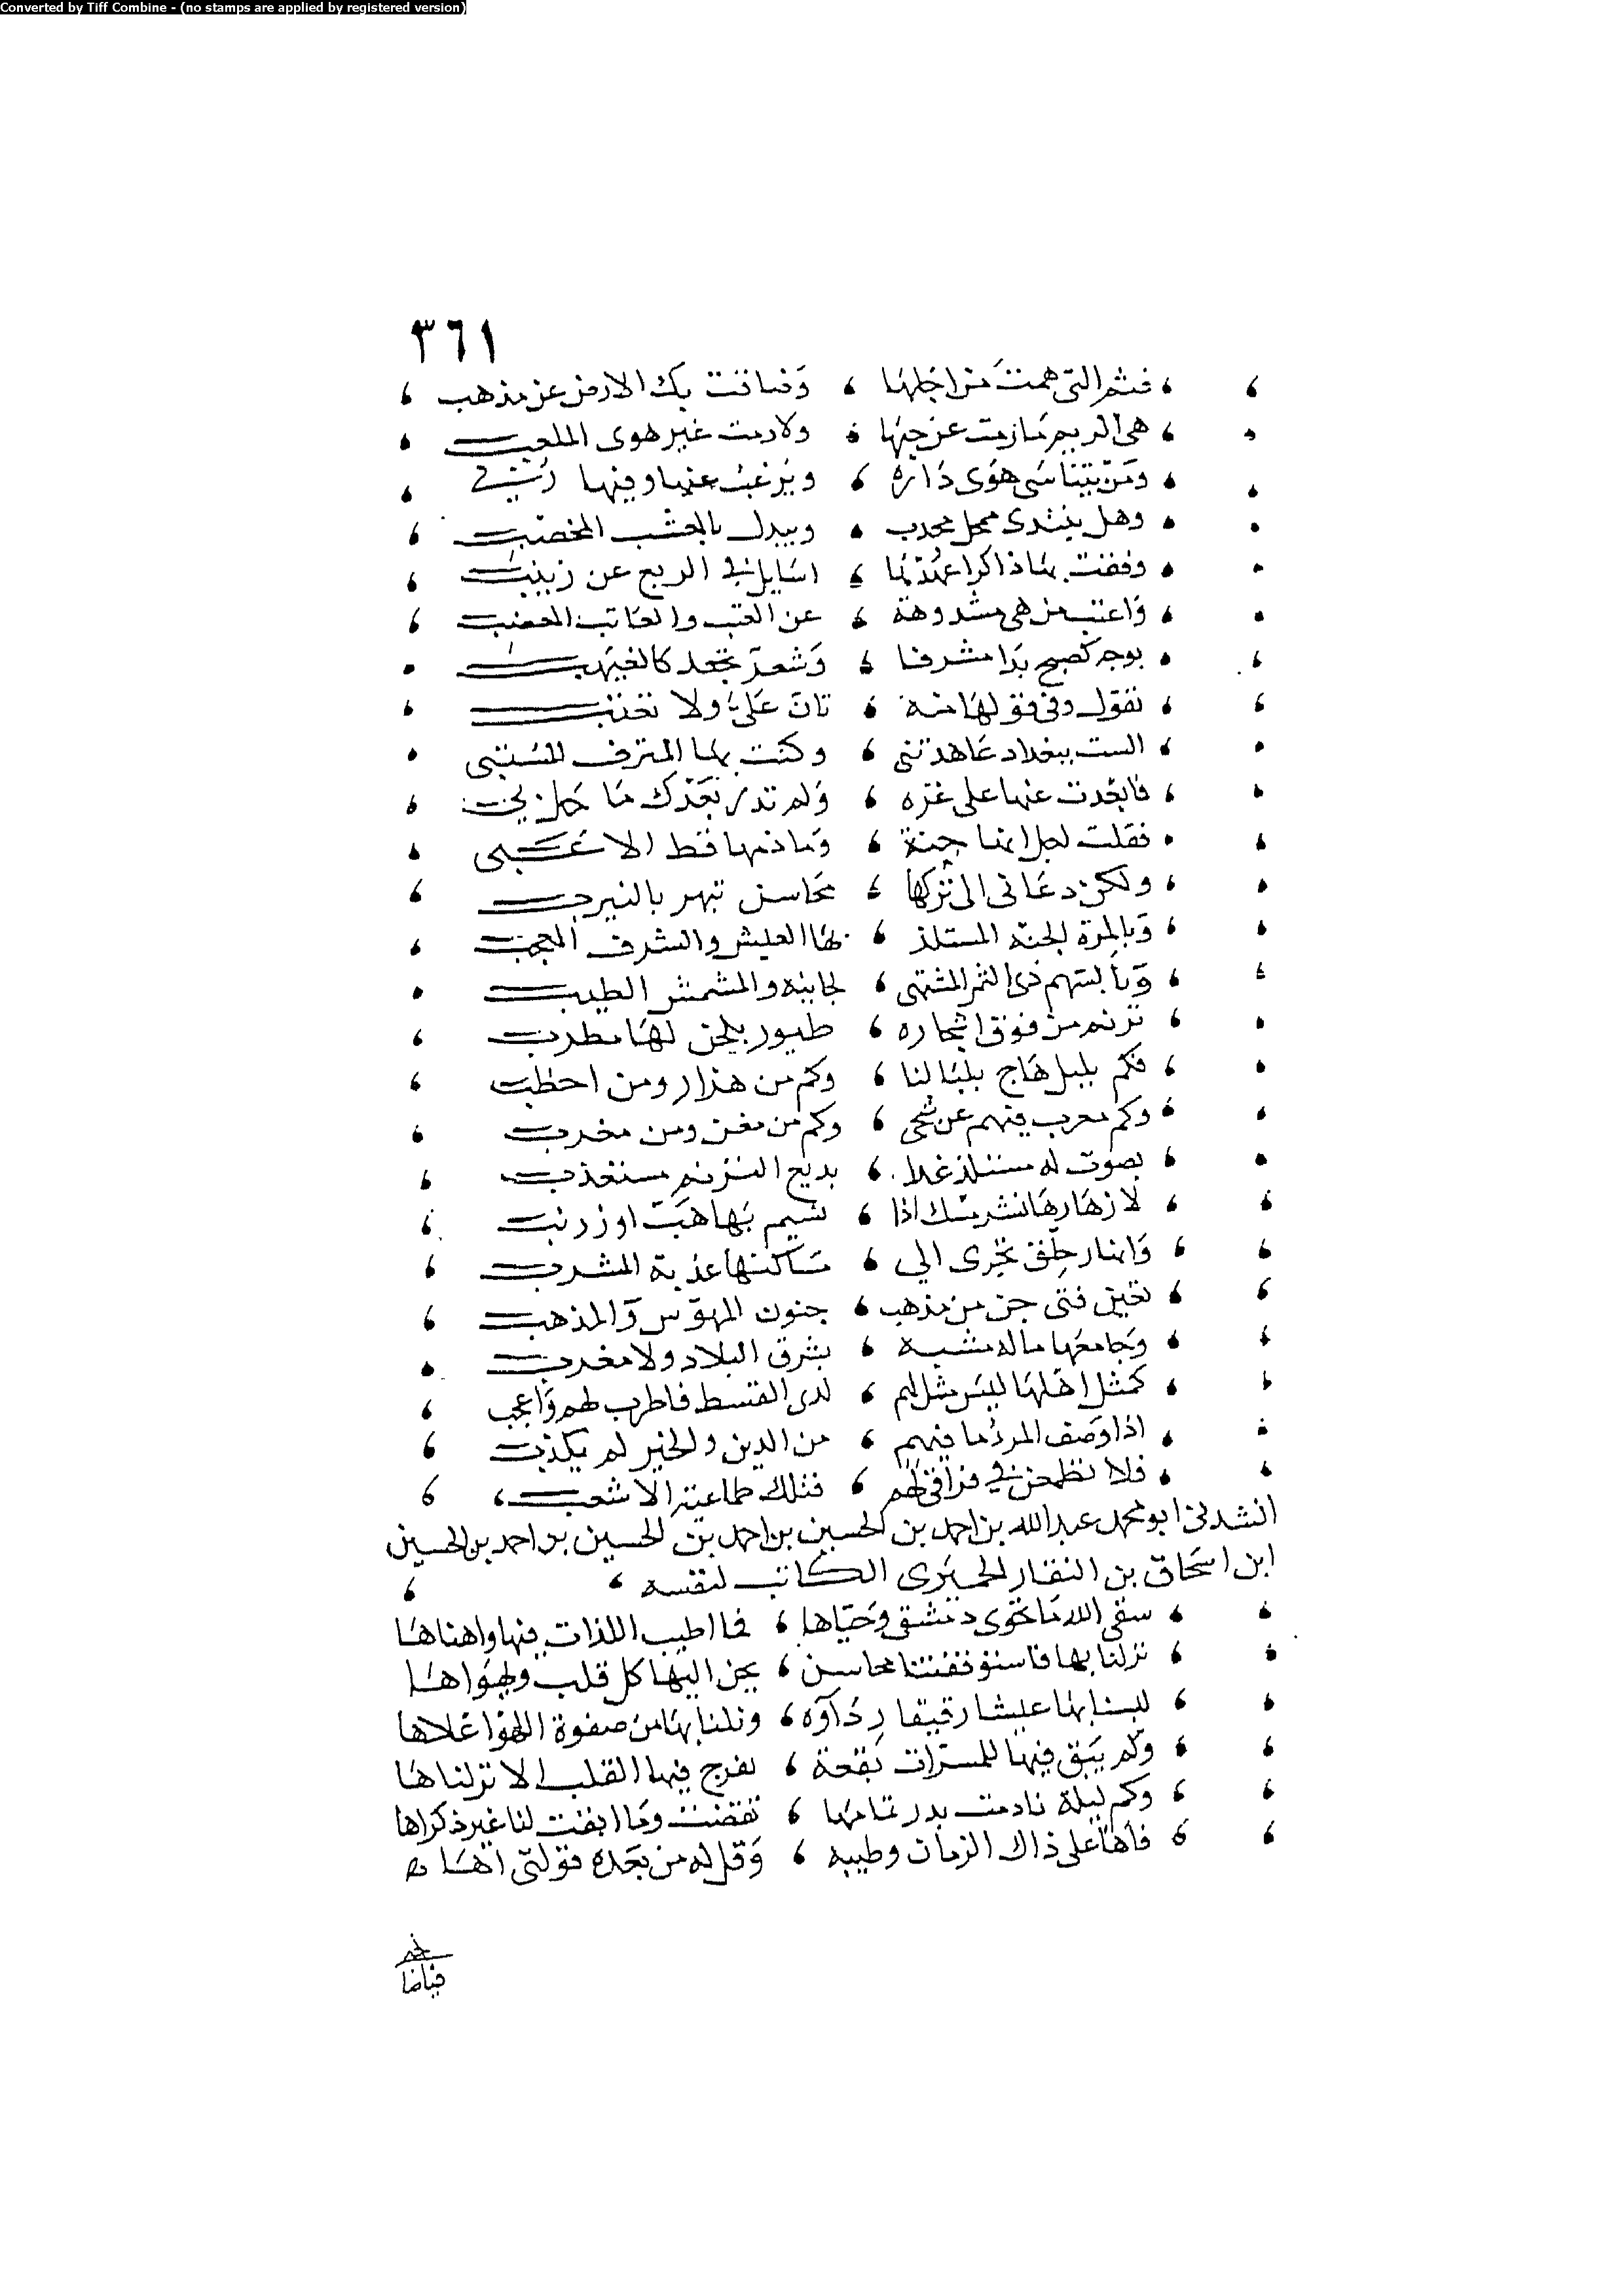 Converted by Tiff Combine - (no stamps are applied by registered version)
٣٦١
فثم التي همت من اجلها ، وضاقت بك الارض عن مذهب
هي الريم مازمت عن حبها ، ولا رمت غير هوى الملعب
ومن يتناسى هوى داره ، ويرغب عنها وفيها ربي
وهل يفتدى ممحل مجدب ، ويبدل بالعشب المخصب
وقفت بها ذاكرا عهدنا ، اسايل في الربع عن زينب
واعتب من هي مشدوهة ، عن العتب والعاتب المعتب
بوجه كصبح بدا مشرقا ، وشعر تجعد كالغيهب
تقول وفي قولها منة ، تان علي ولا تعتب
الست ببغداد عاهدتني ، وكنت بها المترف المستبي
فابعدت عنها على غرة ، ولم تدر بعدك ما حل بي
فقلت اجل انها جنة ، وما ذمها قط الا غبي
ولكن دعاني الى تركها ، محاسن تبهر بالنيرب
وبالمزة الجنة المستلذ ، بها العيش والشرف المعجب
وبالسهم ذي الثمر المشتهى ، لجانيه والمشمش الطيب
ترنم من فوق اشجاره ، طيور بلحن لها مطرب
فكم بلبل هاج بلبالنا ، وكم من هزار ومن احطب
وكم معرب فيهم عن شجى ، وكم من مغن ومن مغرب
بصوت له مستلذ غلا ، بديع الترنم مستعذب
لازهارها نشر مسك اذا ، نسيم بها هب او زرنب
وانهار جلق تجرى الي ، مساكنها عذبة المشرب
تحين فتى جن من مذهب ، جنون المهوس والمذهب
وجامعها ماله مشبه ، بشرق البلاد ولا مغرب
كمثل اهلها ليس مثل لهم ، لدى القسط فاطرب لهم واعجب
اذا وصف المرء ما فيهم ، من الدين والخير لم يكذب
فلا تطمعن في فراقي لهم ، فتلك طماعية الاشعب
انشدني ابو محمد عبد الله بن احمد بن الحسين بن احمد بن الحسين بن احمد بن الحسين
ابن اسحاق بن النقار الحميرى الكاتب لنفسه
سقى الله ما تحوى دمشق وحياها ، فما اطيب اللذات فيها واهناها
نزلنا بها فاستوقفتنا محاسن ، يحن اليها كل قلب ويهواها
لبسنا بها عيشا رقيقا رداؤه ، ونلنا بها من صفوة اللهو اعلاها
ولم يبق فيها للمسرات بقعة ، تفرج فيها القلب الا نزلناها
وكم ليلة نادمت بدر تمامها ، تقضت وما ابقت لنا غير ذكراها
فاها على ذاك الزمان وطيبه ، وقل له من بعده قولتي اها